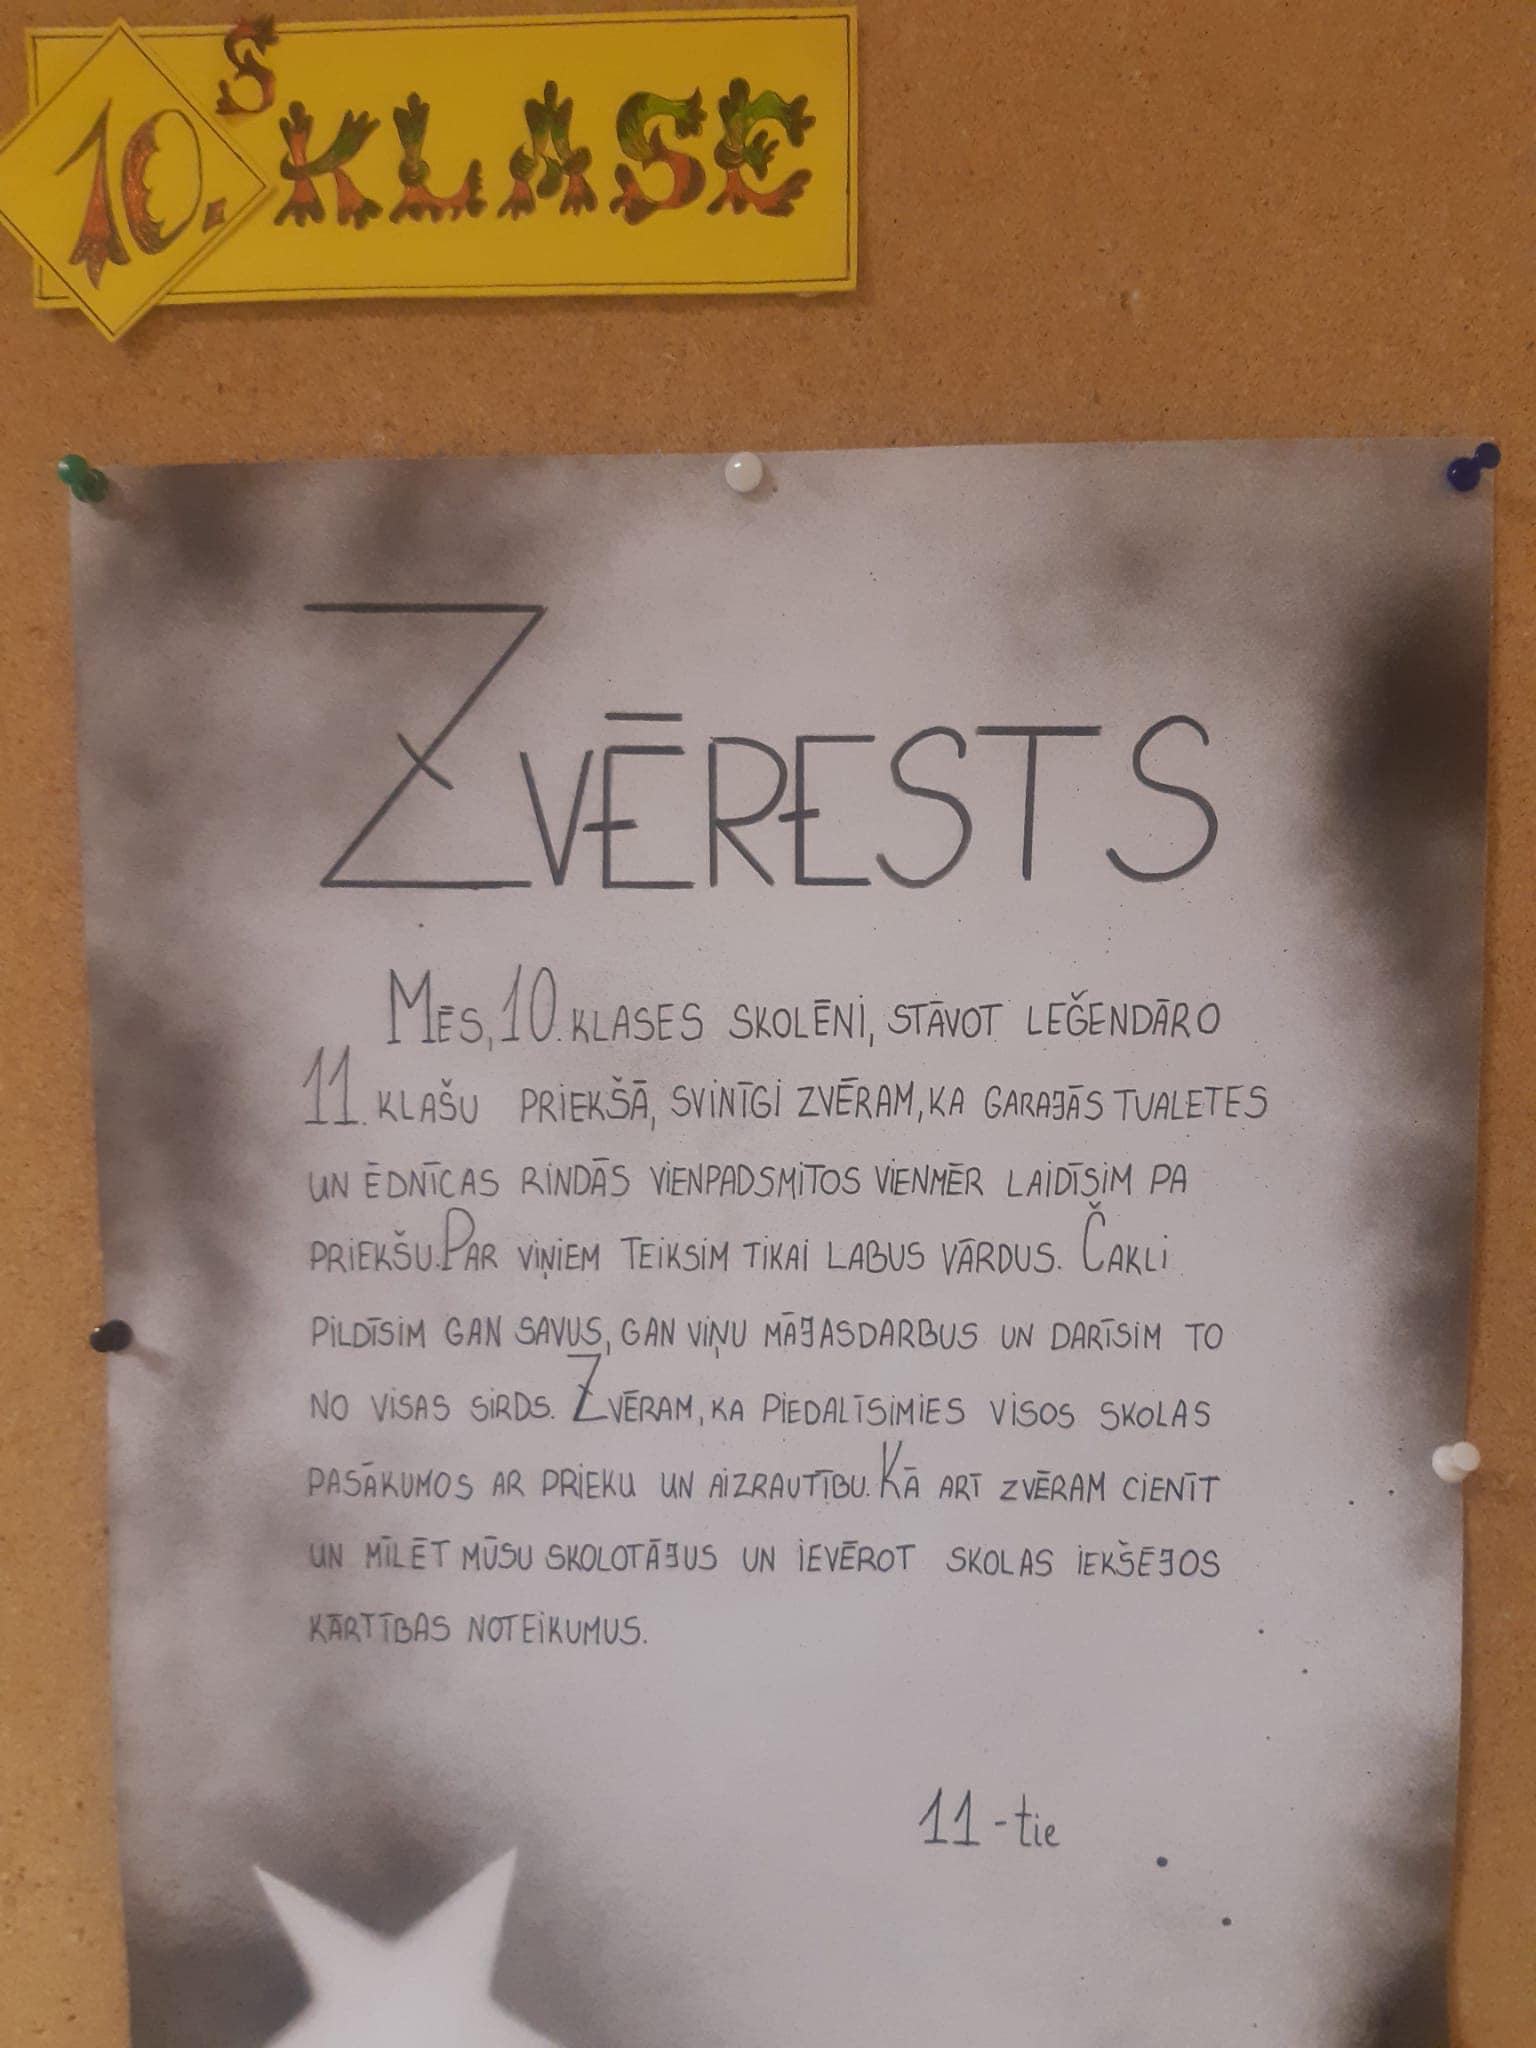 10.S KLASE
ZVĒRESTS
MĒS, 10. KLASES SKOLĒNI, STĀVOT LEĞENDĀRO
11. KLAŠU PRIEKŠĀ, SVINĪGI ZVĒRAM, KA GARAJĀS TUALETES
UN ĒDNĪCAS RINDĀS VIENPADSMITOS VIENMĒR LAIDĪSIM PA
PRIEKŠU. PAR VIŅIEM TEIKSIM TIKAI LABUS VĀRDUS. ČAKLI
PILDĪSIM GAN SAVUS, GAN VIŅU MĀJASDARBUS UN DARĪSIM TO
NO VISAS SIRDS. ZVĒRAM, KA PIEDALĪSIMIES VISOS SKOLAS
PASĀKUMOS AR PRIEKU UN AIZRAUTĪBU. KĀ ARĪ ZVĒRAM CIENĪT
UN MĪLĒT MŪSU SKOLOTĀJUS UN IEVĒROT SKOLAS IEKŠĒJOS
KĀRTĪBAS NOTEIKUMUS.
11-tie